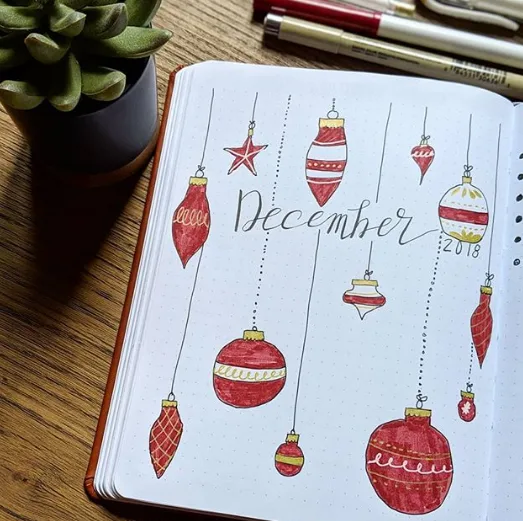 December
2018